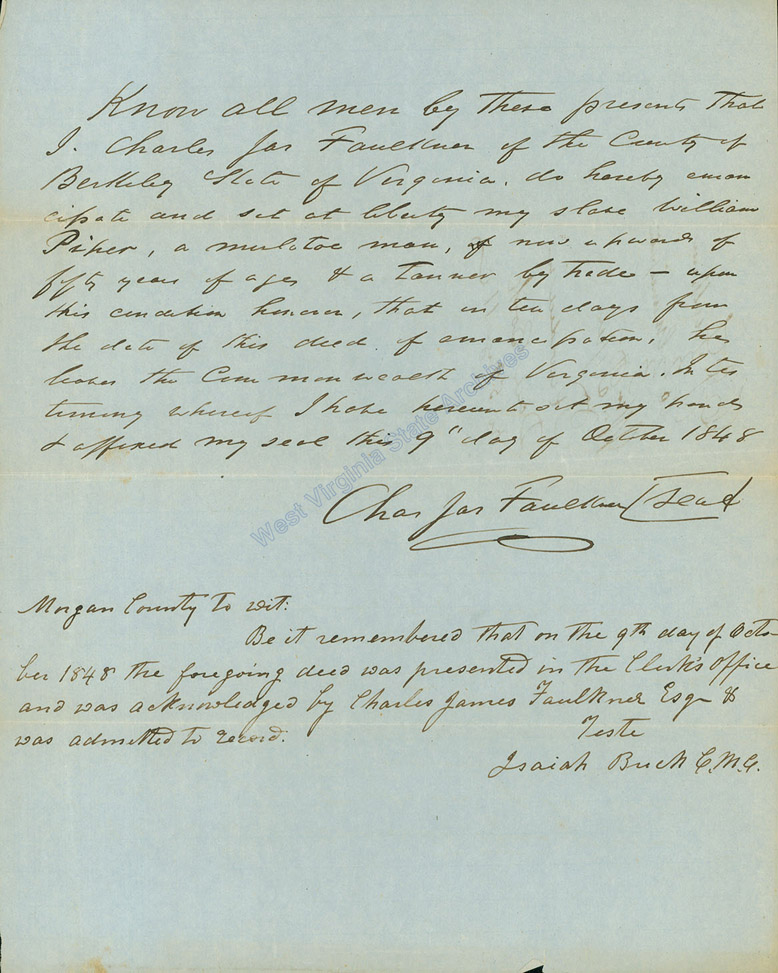 Know all men by these presents that
I. Charles Jas Faulkner of the County of
Berkeley State of Virginia. do hereby eman
cipate and set at liberty my slave William
Piper, a mulatoe man, now upwards of
fifty years of ages & a Tanner by trade — upon
this condition however, that in ten days from
the date of this deed of emancipation, he
leaves the Commonwealth of Virginia. In tes
timony whereof I have hereunto set my hand
& affixed my seal this 9" day of October 1848
Chas Jas Faulkner [Seal]
West Virginia State Archives
Morgan County to wit:
Be it remembered that on the 9th day of Octo-
ber 1848 the foregoing deed was presented in the Clerk's office
and was acknowledged by Charles James Faulkner Esqr &
was admitted to record.
Teste
Isaiah Buck C.M.C.